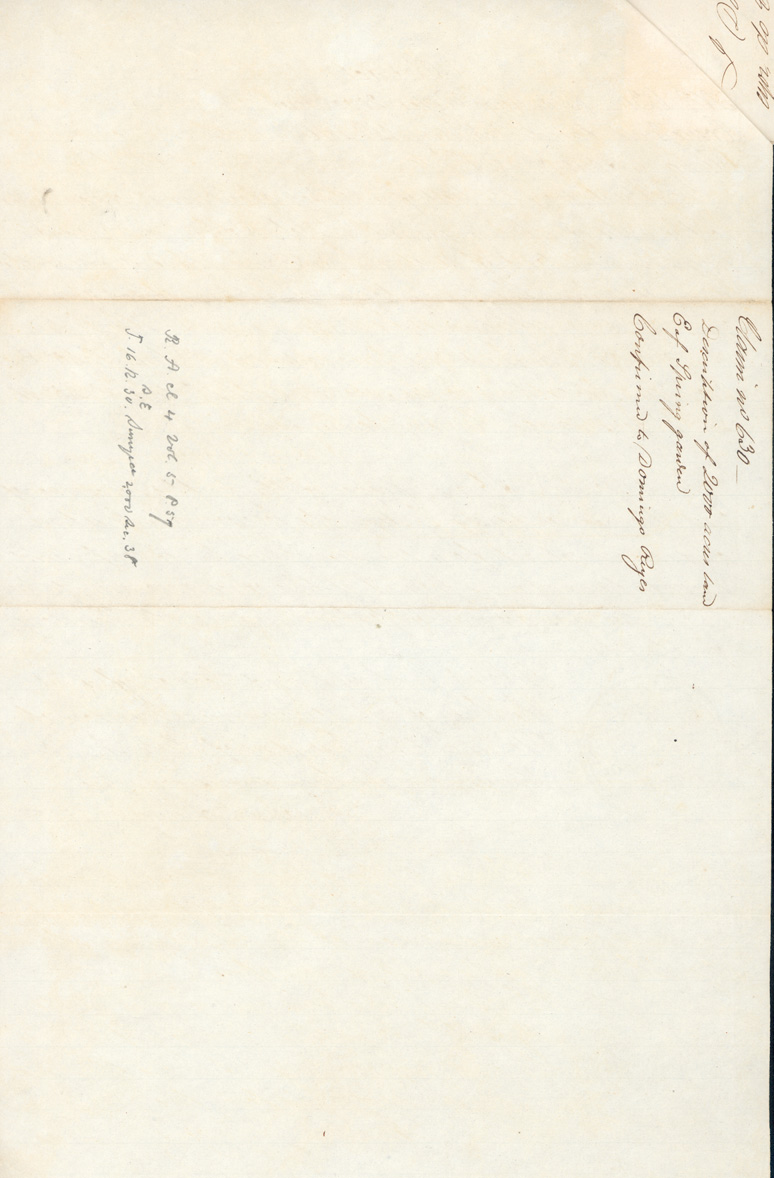 Claim no 630 —
Description of 2000 acres land
E of Spring garden
Confirmed to Domingo Reyes
R. A cl 4 Vol. 5- P. 59
S. E
T. 16. R. 30. 2000 Sec. 38